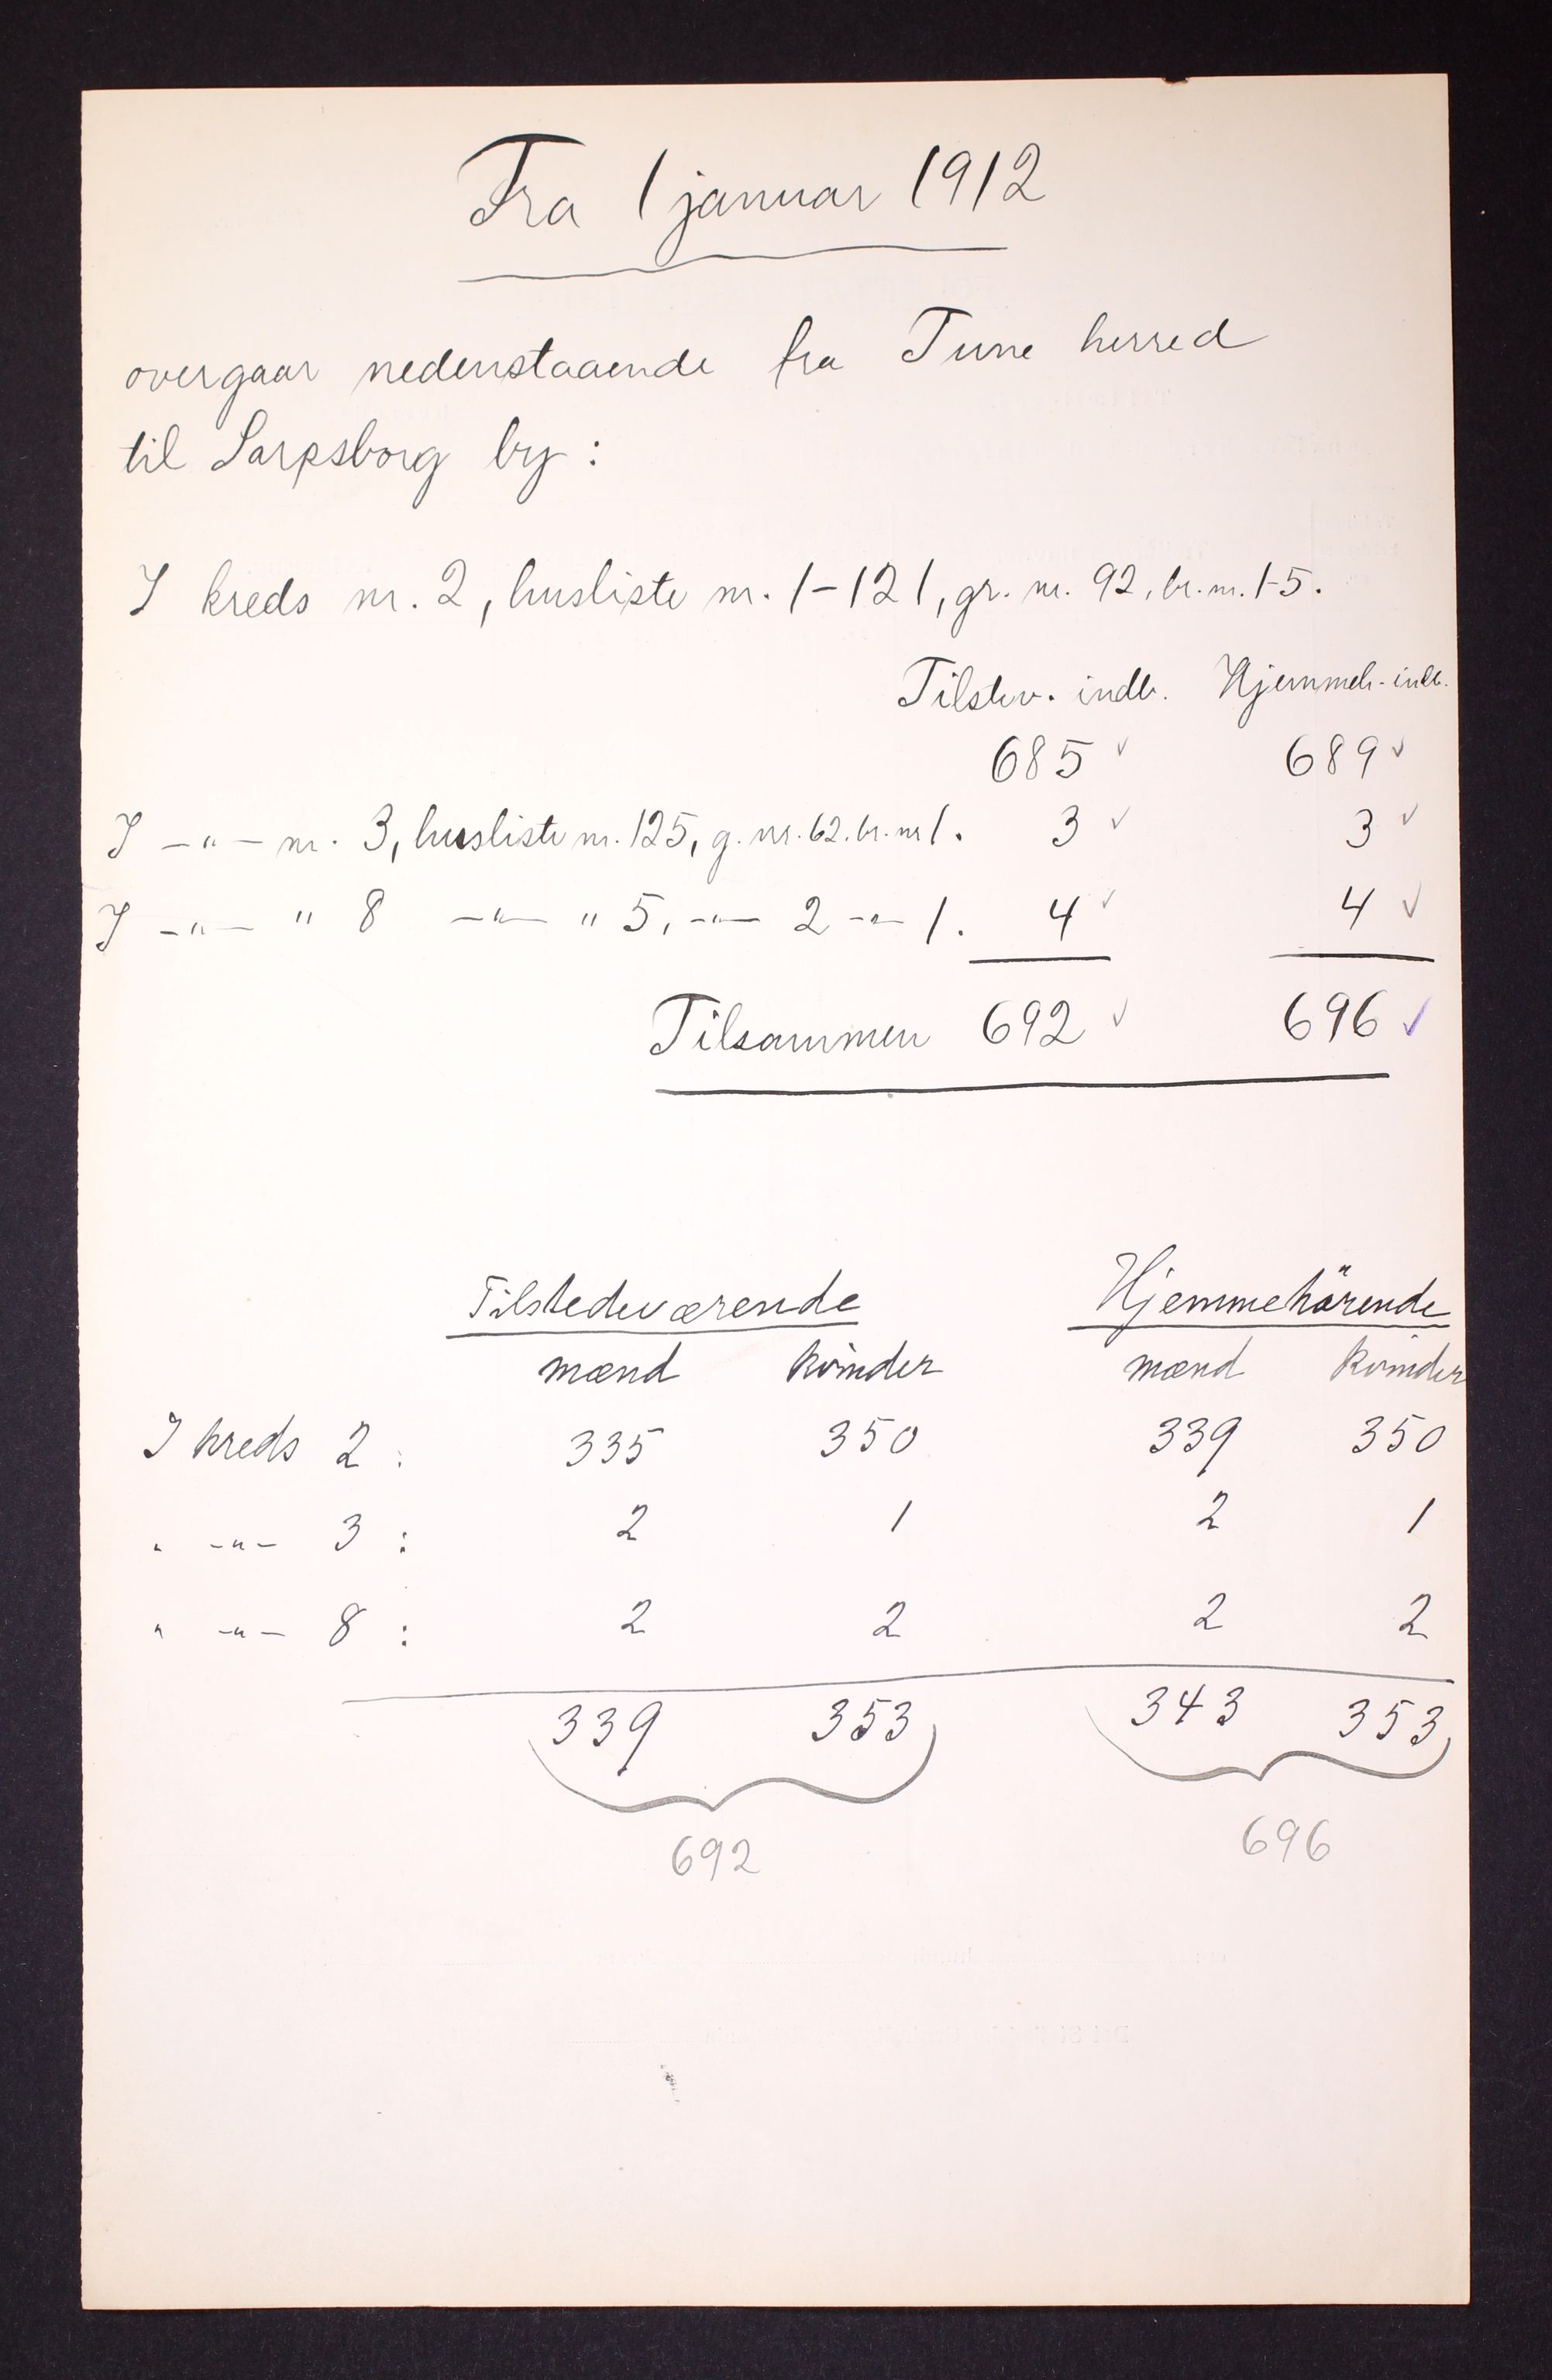 Fra 1 januar 1912
overgaar nedenstaaende fra Tune herred
til Sarpsborg by :
I kreds nr. 2, husliste nr. 1-121, gr. nr. 92, br. nr. 1-5.
Tilstev. indb. Hjemmeh. indb.
685 ✓ 689 ✓
I -"- nr. 3, husliste nr. 125, g. nr. 62. br. nr 1. 3 ✓ 3 ✓
I -"- " 8 -"- " 5, -"- 2 -"- 1. 4 ✓ 4 ✓
Tilsammen 692 ✓ 696 ✓
Tilstedeværende Hjemmehörende
mænd kvinder mænd kvinder
I kreds 2 : 335 350 339 350
" -"- 3 : 2 1 2 1
" -"- 8 : 2 2 2 2
339 353 343 353
692 696